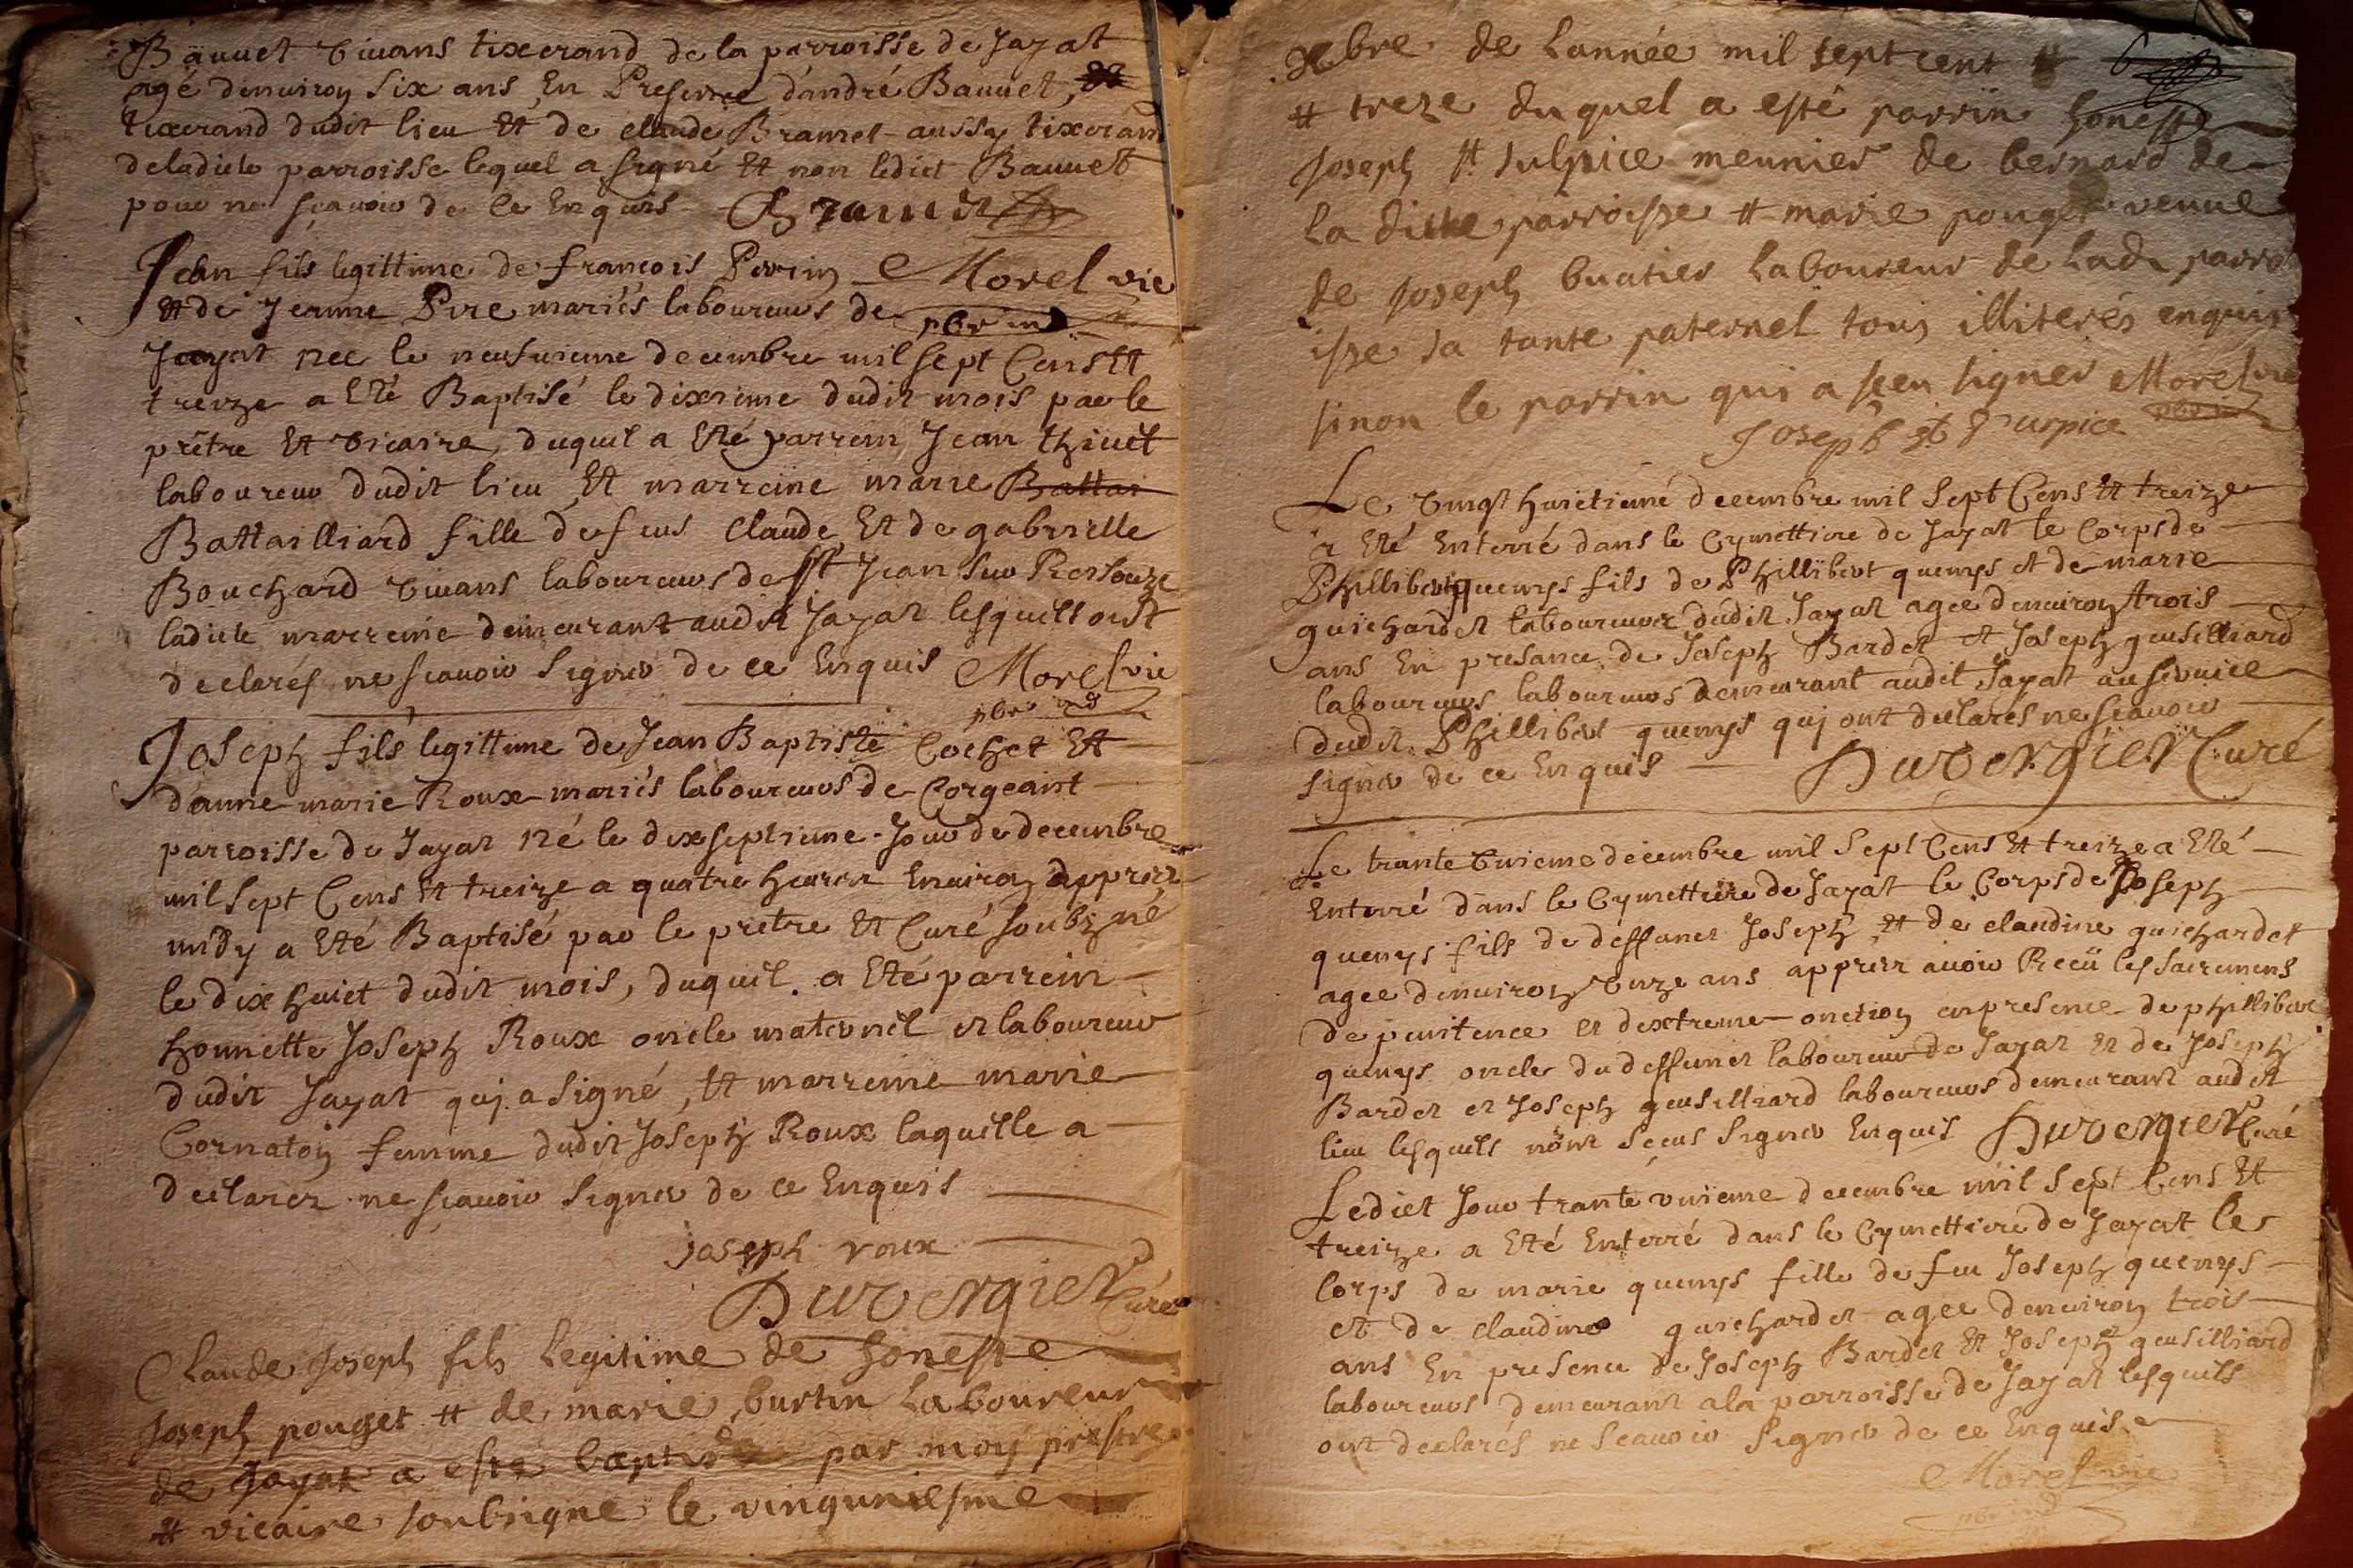 Bauuet viuans tixerand de la parroisse de Jayat
agé denuiron six ans, En Presence d'andré Bauuet,
tixerand dudit lieu Et de claude Bramet aussy tixerand
deladicte parroisse lequel a signé Et non ledict Bauuet
pour ne scauoir de ce Enquis Bramet
Jean fils legittime de francois Perrin Morel vic
Et de Jermine Pire mariés laboureurs de pbr ind
Jayat nee le neufuieme decembre mil sept Cens Et
treize a Eté Baptisé le dixieme dudit mois par le
prêtre Et vicaire, duquel a Eté parrein Jean thiuet
laboureur dudit lieu Et marreine marie Battai
Battailliard fille defeus Claude Et de gabrielle
Bouchard viuans laboureurs de St Jean sur Ressouze
ladicte marreine demeurant audit Jayat lesquels ont
declarés ne scauoir signer de ce Enquis Morel vic
pbr ind
Joseph fils legittime de Jean Baptiste Cochet Et
danne marie Roux mariés laboureurs de Corgeant
parroisse de Jayat né le dixseptieme Jour de decembre
mil sept Cens Et treize a quatre heures Enuiron apprez
midy a Eté Baptisé par le pretre Et Curé soubzné
le dix huict dudit mois, duquel a Eté parrein
honnette Joseph Roux oncle maternel et laboureur
dudit Jayat qui a signé, Et marreine marie
Cornaton femme dudit Joseph Roux laquelle a
declarez ne scauoir signer de ce Enquis
joseph roux
Duvergier Curé
Claude Joseph fils legitime de honeste
Joseph pouget et de marie burtin laboureur
de Jayat a este baptisé par moy prestre
et vicaire soubsigné le vinguniesme
xbre de l'année mil sept cent et
et treze duquel a esté parrin honeste
Joseph st sulpice meunier de besnard de
la dicte parroisse et marie pouget veuue
de joseph buatier laboureur de lade parro
isse sa tante paternel tous illiterés enquis
sinon le parrin qui a sceu signer Morel vic
Joseph st surpice pbr ind
Le vingt huictieme decembre mil sept Cens Et treize
a Eté Enterré dans le Cymettiere de Jayat le Corps de
Phillibert quenys fils de Phillibert quenys et de marie
guichardet laboureur dudit Jayat agee denuiron trois
ans En presance de Joseph Bardet et Joseph geusilliard
laboureurs laboureurs demeurant audit Jayat au seruice
dudit Phillibert quenys qui ont declarés ne scauoir
signer de ce Enquis Duvergier Curé
Le trante unieme decembre mil sept Cens Et treize a Eté
Enterré dans le Cymettiere de Jayat le Corps de Joseph
quenys fils de deffunct Joseph Et de claudine guichardet
agee denuiron unze ans apprez auoir Receü les sacremens
de penitence et dextreme onction en presence de phillibert
quenys oncle du deffunct laboureur de Jayat et de Joseph
Bardet et Joseph geusilliard laboureurs demeurant audit
lieu lesquels nônt sceus signer Enquis Duvergier Curé
Ledict Jour trante unieme decembre mil sept Cens Et
treize a Eté Enterré dans le Cymettiere de Jayat les
Corps de marie quenys fille de feu Joseph quenys
et de claudine guichardet agee denuiron trois
ans En presence de Joseph Bardet Et Joseph geusilliard
laboureurs demeurant a la parroisse de Jayat lesquels
ont declarés ne scauoir signer de ce Enquis
Morel vic
pbr ind